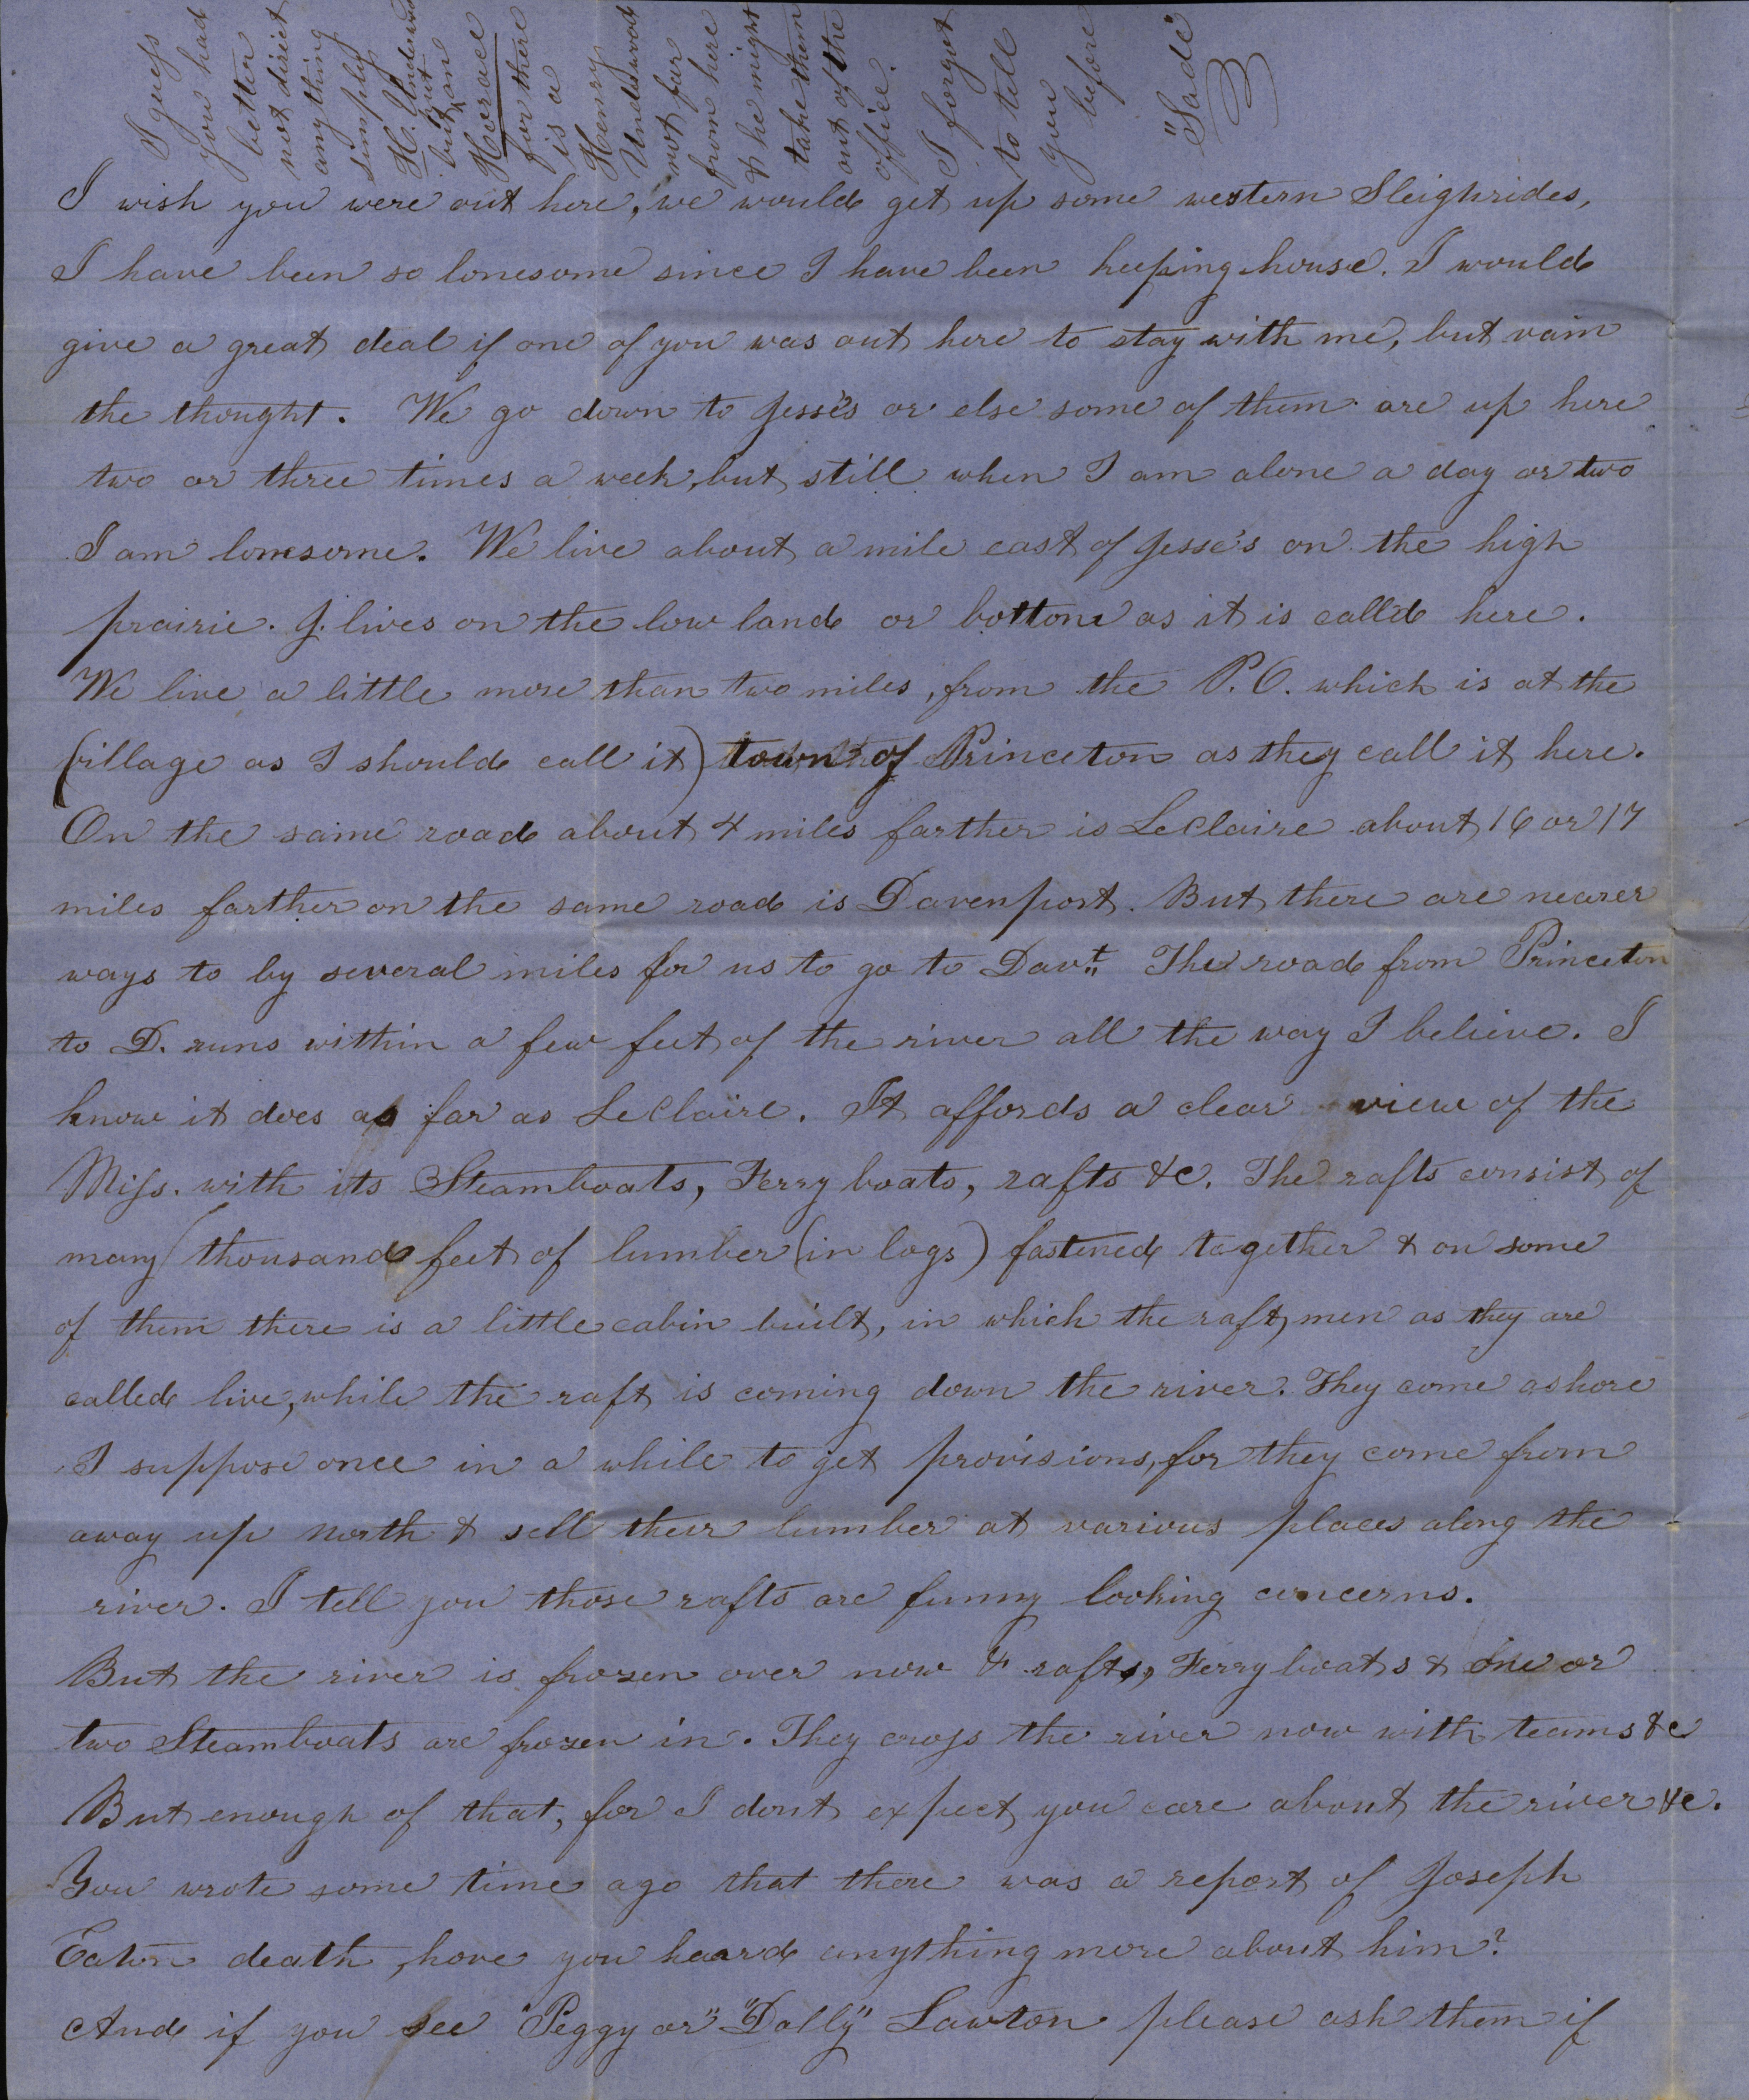 I guess
you had
better
not direct
anything
simply
H. Underwood
but put on
Horace
for there
is a
Henry
Underwood
not far
from here
& he might
take them
out of the
office.
I forgot
to tell
you
before
"Sade"
I wish you were out here, we would get up some western Sleighrides,
I have been so lonesome since I have been keeping house. I would
give a great deal if one of you was out here to stay with me, but vain
the thought. We go down to Jesse's or else some of them are up here
two or three times a week, but still when I am alone a day or two
I am lonesome. We live about a mile east of Jesse's on the high
prairie. J. lives on the low land or bottom as it is call'd here.
We live a little more than two miles, from the P.O. which is at the
(village as I should call it) town of Princeton as they call it here.
On the same road about 4 miles farther is LeClaire about 16 or 17
miles farther on the same road is Davenport. But there are nearer
ways to by several miles for us to go to Davt. The road from Princeton
to D. runs within a few feet of the river all the way I believe. I
know it does as far as LeClaire. It affords a clear view of the
Miss. with its Steamboats, Ferry boats, rafts &c. The rafts consist of
many (thousand feet of lumber (in logs) fastened together & on some
of them there is a little cabin built, in which the raft, men as they are
called live, while the raft is coming down the river. They come ashore
I suppose once in a while to get provisions, for they come from
away up north & sell their lumber at various places along the
river. I tell you those rafts are funny looking concerns.
But the river is frozen over now & rafts, Ferry boats & one or
two Steamboats are frozen in. They cross the river now with teams &c
But enough of that, for I dont expect you care about the river &c.
You wrote some time ago that there was a report of Joseph
Eaton death, have you heard anything more about him?
And if you see "Peggy or" "Dolly" Lawton please ask them if